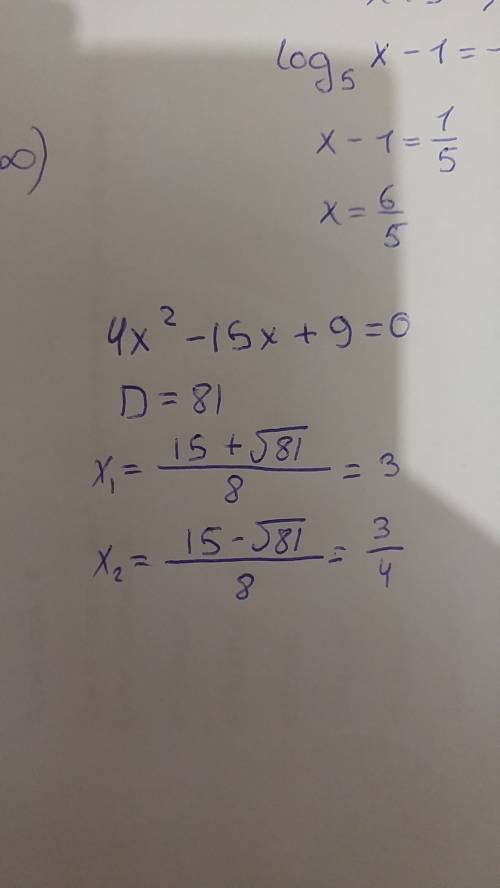 log₅ x - 1 = -
x - 1 = 1/5
∞)
x = 6/5
4x² - 15x + 9 = 0
D = 81
x₁ = (15 + √81)/8 = 3
x₂ = (15 - √81)/8 = 3/4